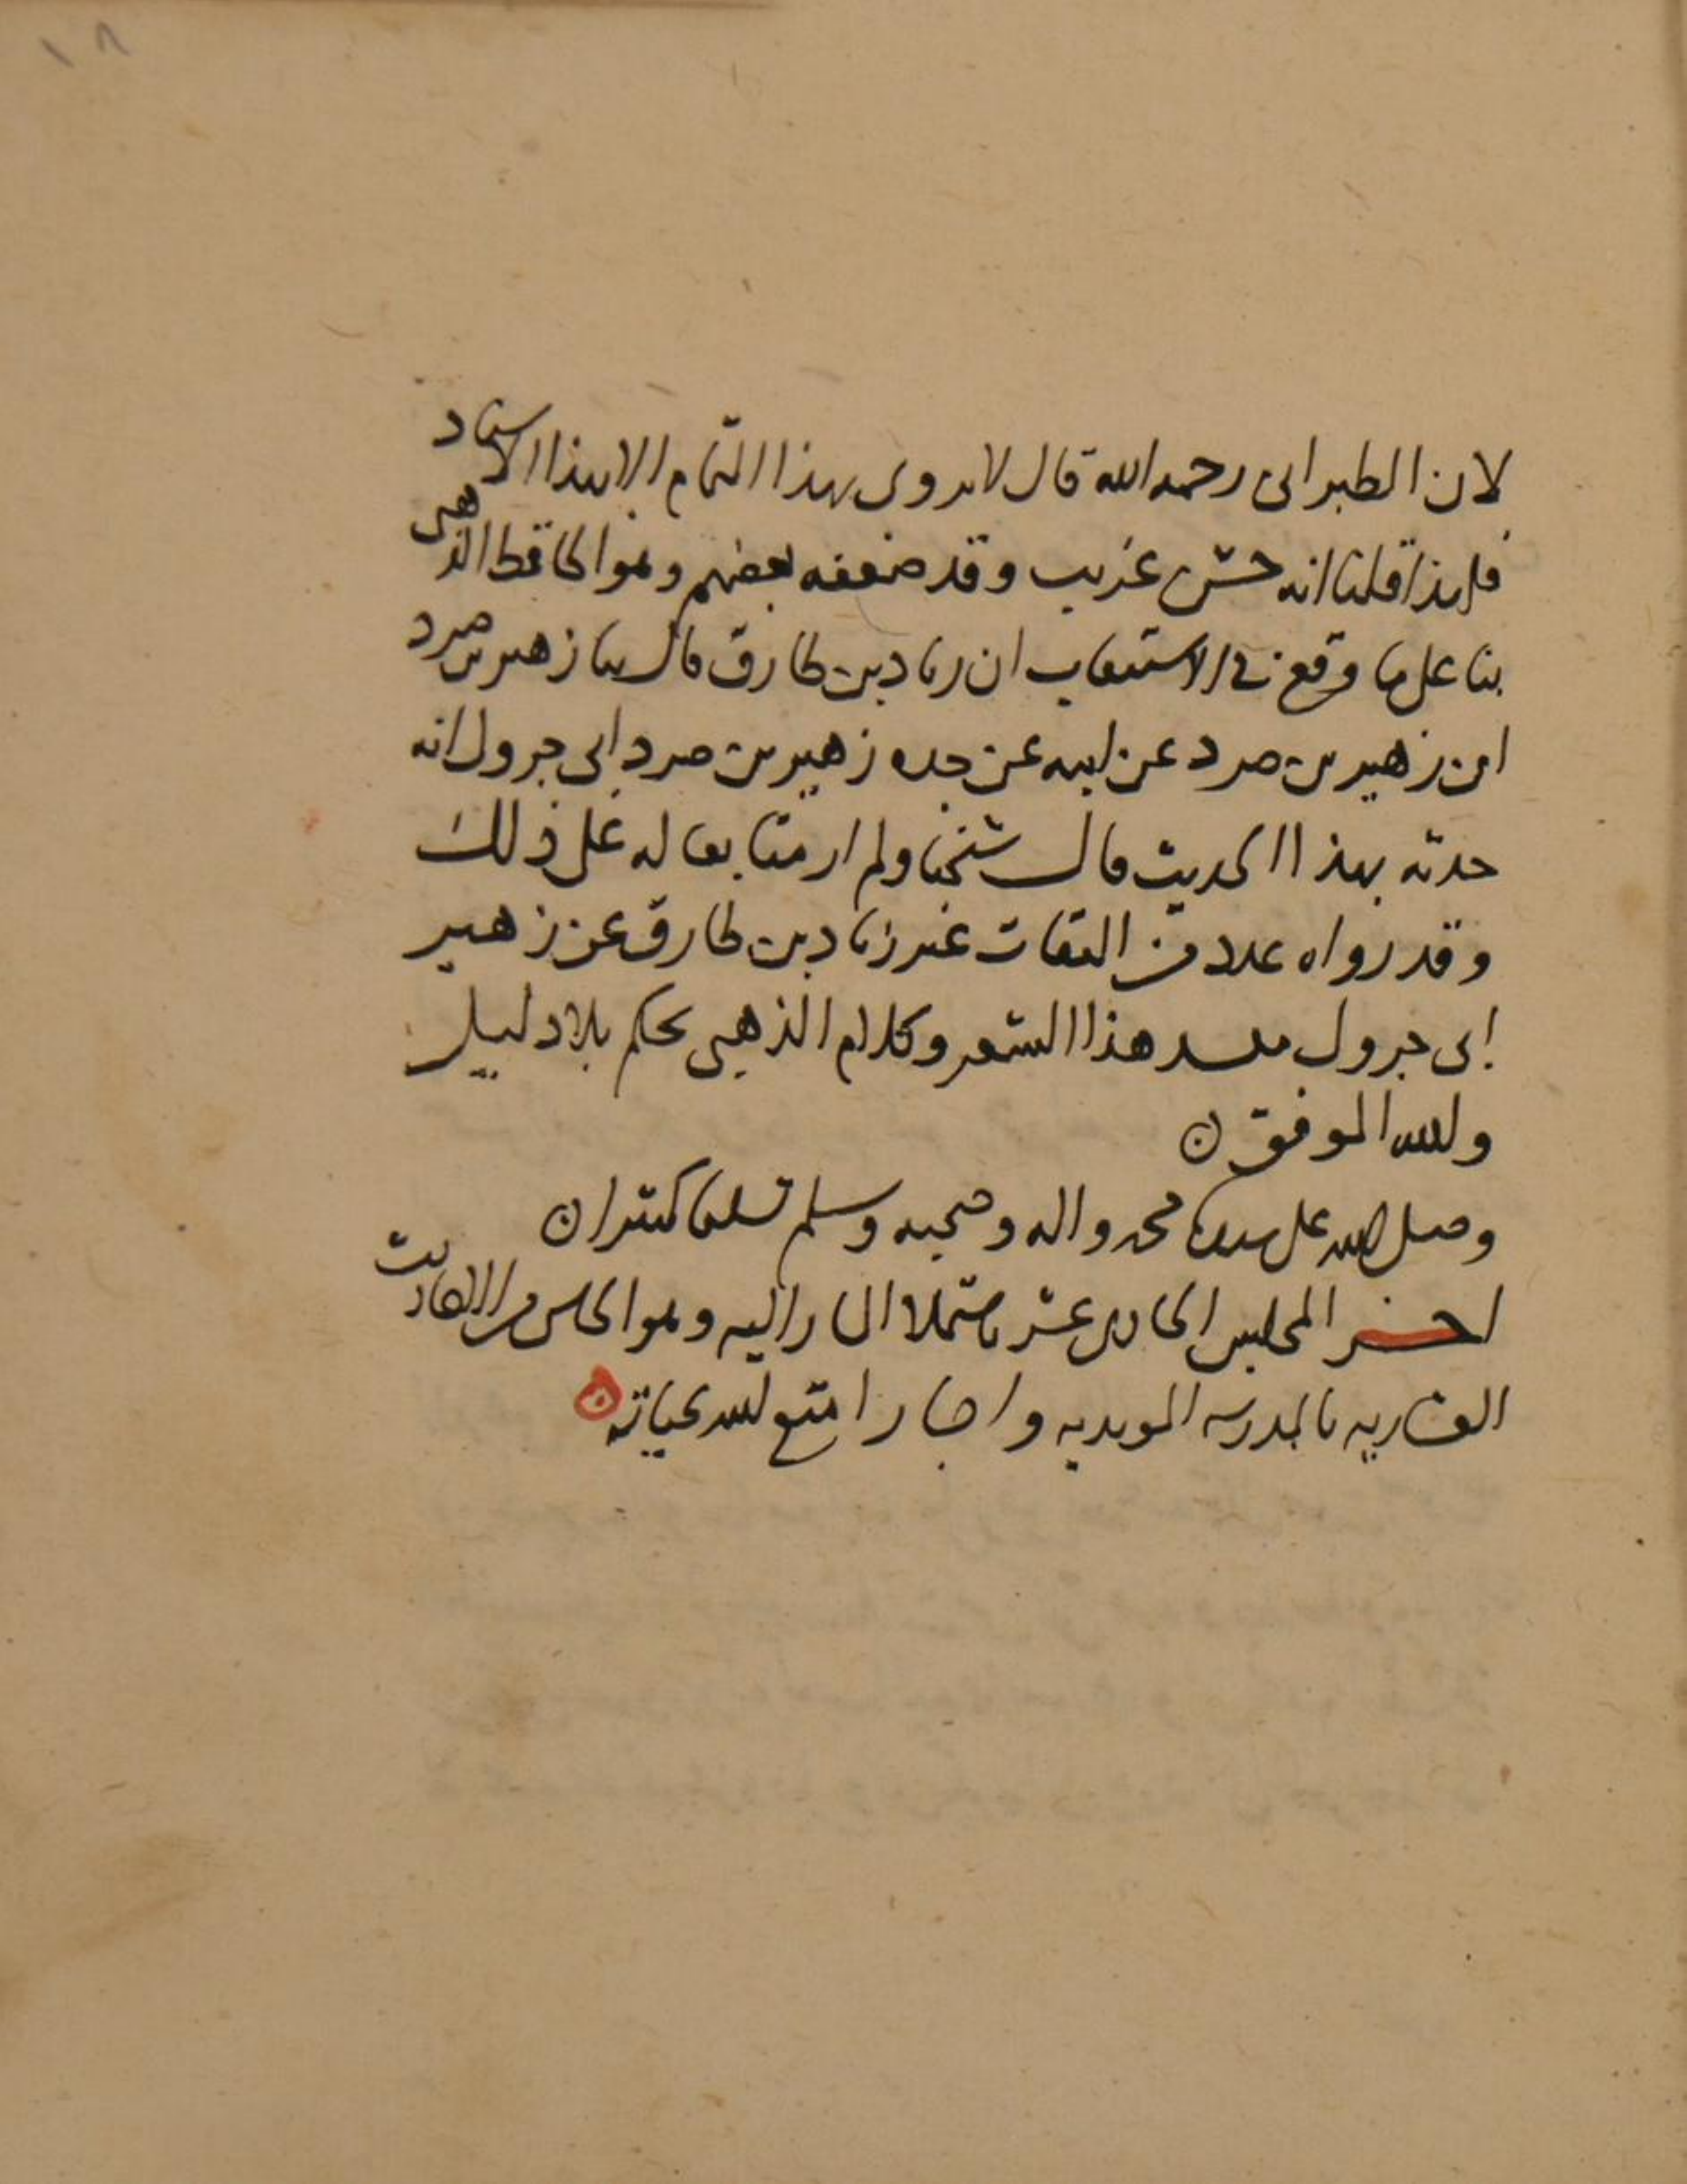 ١٨
لان الطبرانى رحمه الله قال لا يروى بهذا التمام الا بهذا الاسناد
فلهذا قلنا انه حسن غريب وقد ضعفه بعضهم وهو الحافظ الذهبى
بنا على ما وقع فى الاستيعاب ان زياد بن طارق قال ثنا زهير بن صرد
ابن زهير بن صرد عن ابيه عن جده زهير بن صرد ابى جرول انه
حدثه بهذا الحديث قال شيخنا ولم ار متابعا له على ذلك
وقد رواه عدد من الثقات عن زياد بن طارق عن زهير
ابى جرول هذا الشعر وكلام الذهبى تحكم بلا دليل
والله الموفق ن
وصلى الله على سيدنا محمد واله وصحبه وسلم تسليما كثيرا ن
اخر المجلس الحادى عشر المشار اليه وهو من الاحاديث
العشاريه بالمدرسه المويديه واجاز امتع الله بحياته ن